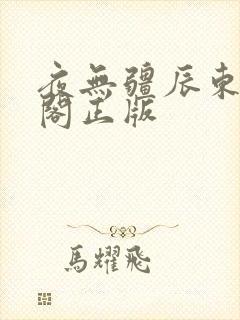 夜無疆辰東
閣正版
馬耀飛